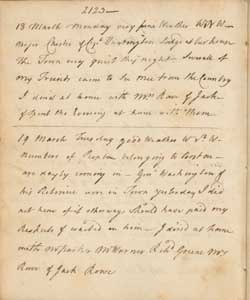 2123
18 March Monday very fine Weather W b W
Major Chester & Cap. Huntington Lodge at our house
the Town very quiet this night. Severale of
my Friends came to See me from the Country
I dined at home with Mrs Rowe & Jack
& Spent the Evening at home with them
19 March Tuesday good Weather W b W.
Numbers of People belonging to Boston
are dayly coming in - Genl Washington &
his Retinue were in Town yesterday I did
not hear of it otherways Should have paid my
Respects & waited on him - I dined at home
with Mr Parker Mr Warner Richd Greene Mrs
Rowe & Jack Rowe